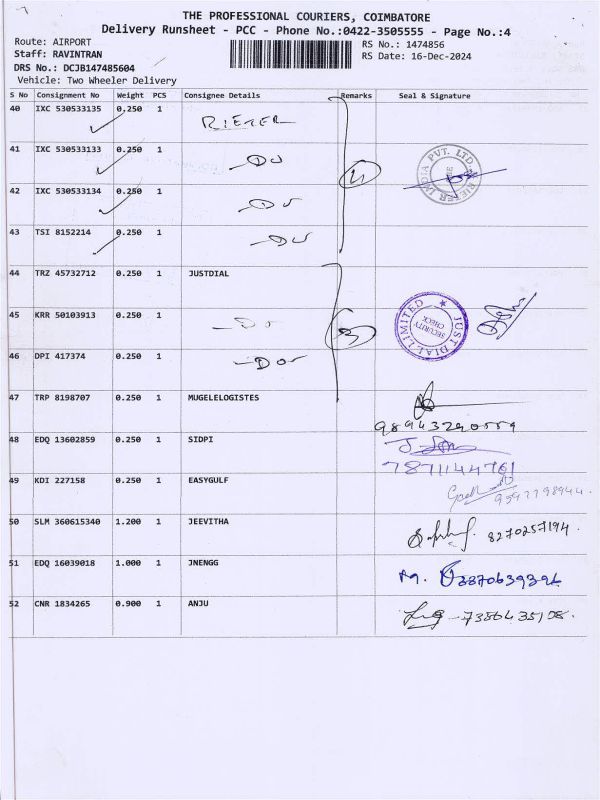 THE PROFESSIONAL COURIERS, COIMBATORE
Delivery Runsheet - PCC - Phone No.:0422-3505555 - Page No.:4
Route: AIRPORT
RS No.: 1474856
Staff: RAVINTRAN
RS Date: 16-Dec-2024
DRS No.: DCJB147485604
Vehicle: Two Wheeler Delivery
S No Consignment No Weight PCS Consignee Details Remarks Seal & Signature
40 IXC 530533135 0.250 1 RIETER
41 IXC 530533133 0.250 1 DO
42 IXC 530533134 0.250 1 DO
4
RIETER INDIA PVT. LTD.
43 TSI 8152214 0.250 1 DO
44 TRZ 45732712 0.250 1 JUSTDIAL
45 KRR 50103913 0.250 1 Do
3
JUST DIAL LIMITED
SECURITY CHECK
46 DPI 417374 0.250 1 DO
47 TRP 8198707 0.250 1 MUGELELOGISTES
98943290559
48 EDQ 13602859 0.250 1 SIDPI
7871144761
49 KDI 227158 0.250 1 EASYGULF
50 SLM 360615340 1.200 1 JEEVITHA 8270257194
51 EDQ 16039018 1.000 1 JNENGG
52 CNR 1834265 0.900 1 ANJU 7386435108